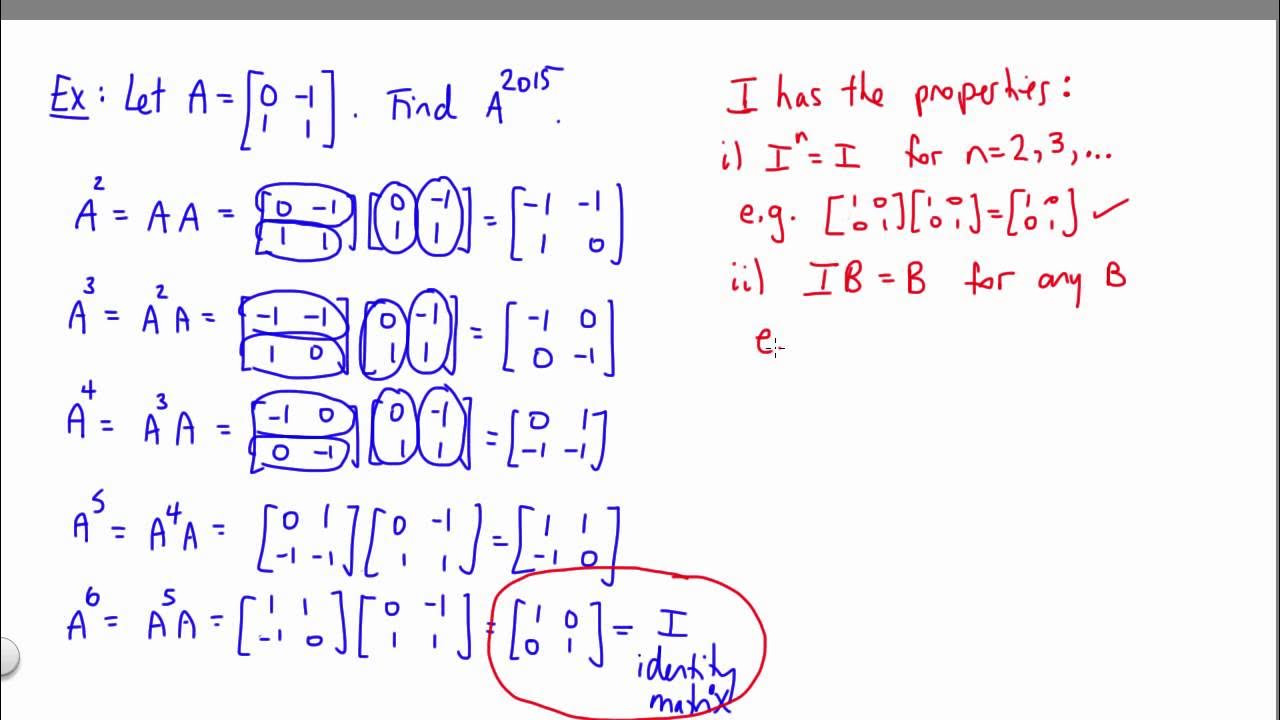 Ex: Let A = [0 -1; 1 1]. Find A^2015.
A^2 = A A = [0 -1; 1 1] [0 -1; 1 1] = [-1 -1; 1 0]
A^3 = A^2 A = [-1 -1; 1 0] [0 -1; 1 1] = [-1 0; 0 -1]
A^4 = A^3 A = [-1 0; 0 -1] [0 -1; 1 1] = [0 1; -1 -1]
A^5 = A^4 A = [0 1; -1 -1] [0 -1; 1 1] = [1 1; -1 0]
A^6 = A^5 A = [1 1; -1 0] [0 -1; 1 1] = [1 0; 0 1] = I
identity
matrix
I has the properties:
i) I^n = I for n=2,3,...
e.g. [1 0; 0 1][1 0; 0 1]=[1 0; 0 1] ✓
ii) IB = B for any B
e.